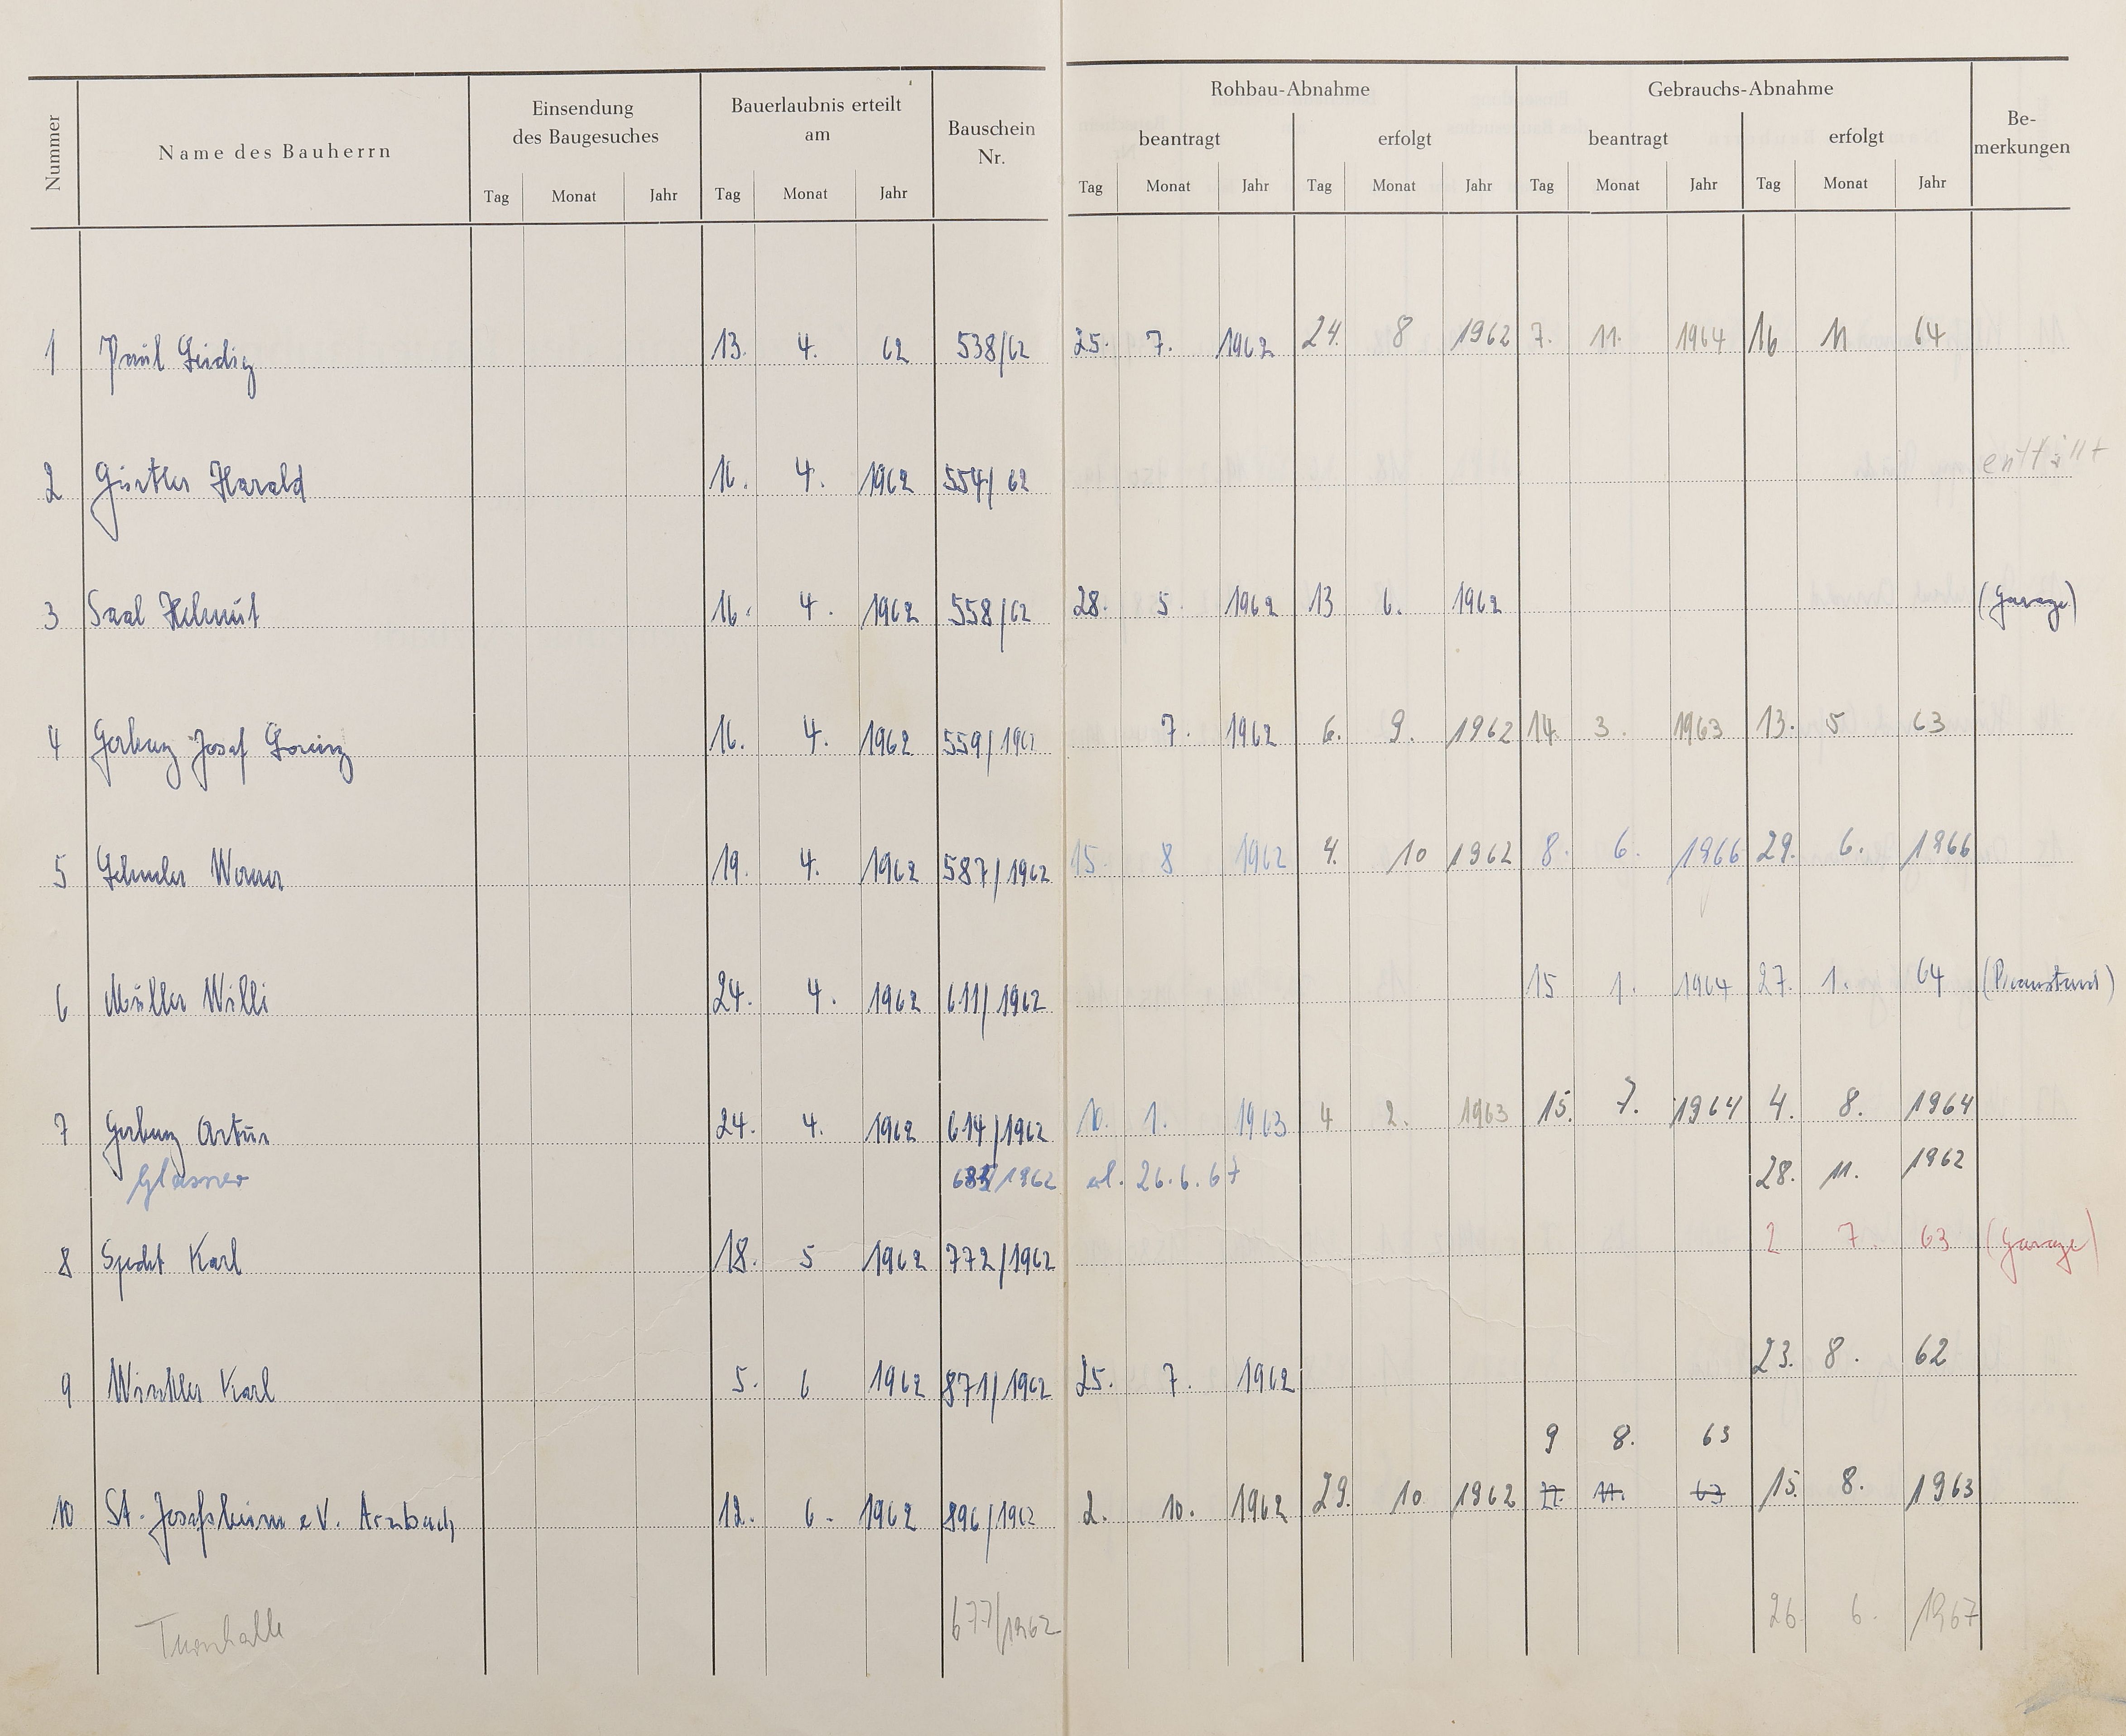 Nummer Name des Bauherrn Einsendung des Baugesuches Bauerlaubnis erteilt am Bauschein Nr. Rohbau-Abnahme Gebrauchs-Abnahme Be-merkungen
beantragt erfolgt beantragt erfolgt
Tag Monat Jahr Tag Monat Jahr Tag Monat Jahr Tag Monat Jahr Tag Monat Jahr Tag Monat Jahr
1 Paul Leidig 13. 4. 62 538/62 25. 7. 1962 24. 8 1962 7. 11. 1964 16 11 64
2 Gürtler Harald 16. 4. 1962 554/62 entfällt
3 Saal Helmut 16. 4. 1962 558/62 28. 5. 1962 13 6. 1962 (Garage)
4 Josef 16. 4. 1962 559/1962 7. 1962 6. 9. 1962 14. 3. 1963 13. 5 63
5 Werner 19. 4. 1962 587/1962 15. 8 1962 4. 10 1962 8. 6. 1966 29. 6. 1966
6 Müller Willi 24. 4. 1962 611/1962 15 1. 1964 27. 1. 64
7 Artur 24. 4. 1962 614/1962 10. 1. 1963 4 2. 1963 15. 7. 1964 4. 8. 1964
Glasner /1962 erl. 26.6.67 28. 11. 1962
8 Specht Karl 18. 5 1962 772/1962 2 7. 63 (Garage)
9 Winkler Karl 5. 6 1962 871/1962 25. 7. 1962 23. 8. 62
9 8. 63
10 St. Josefsheim e.V. Arnbach 12. 6. 1962 896/1962 2. 10. 1962 29. 10 1962 11. 63 15. 8. 1963
Turnhalle 677/1962 26. 6. 1967